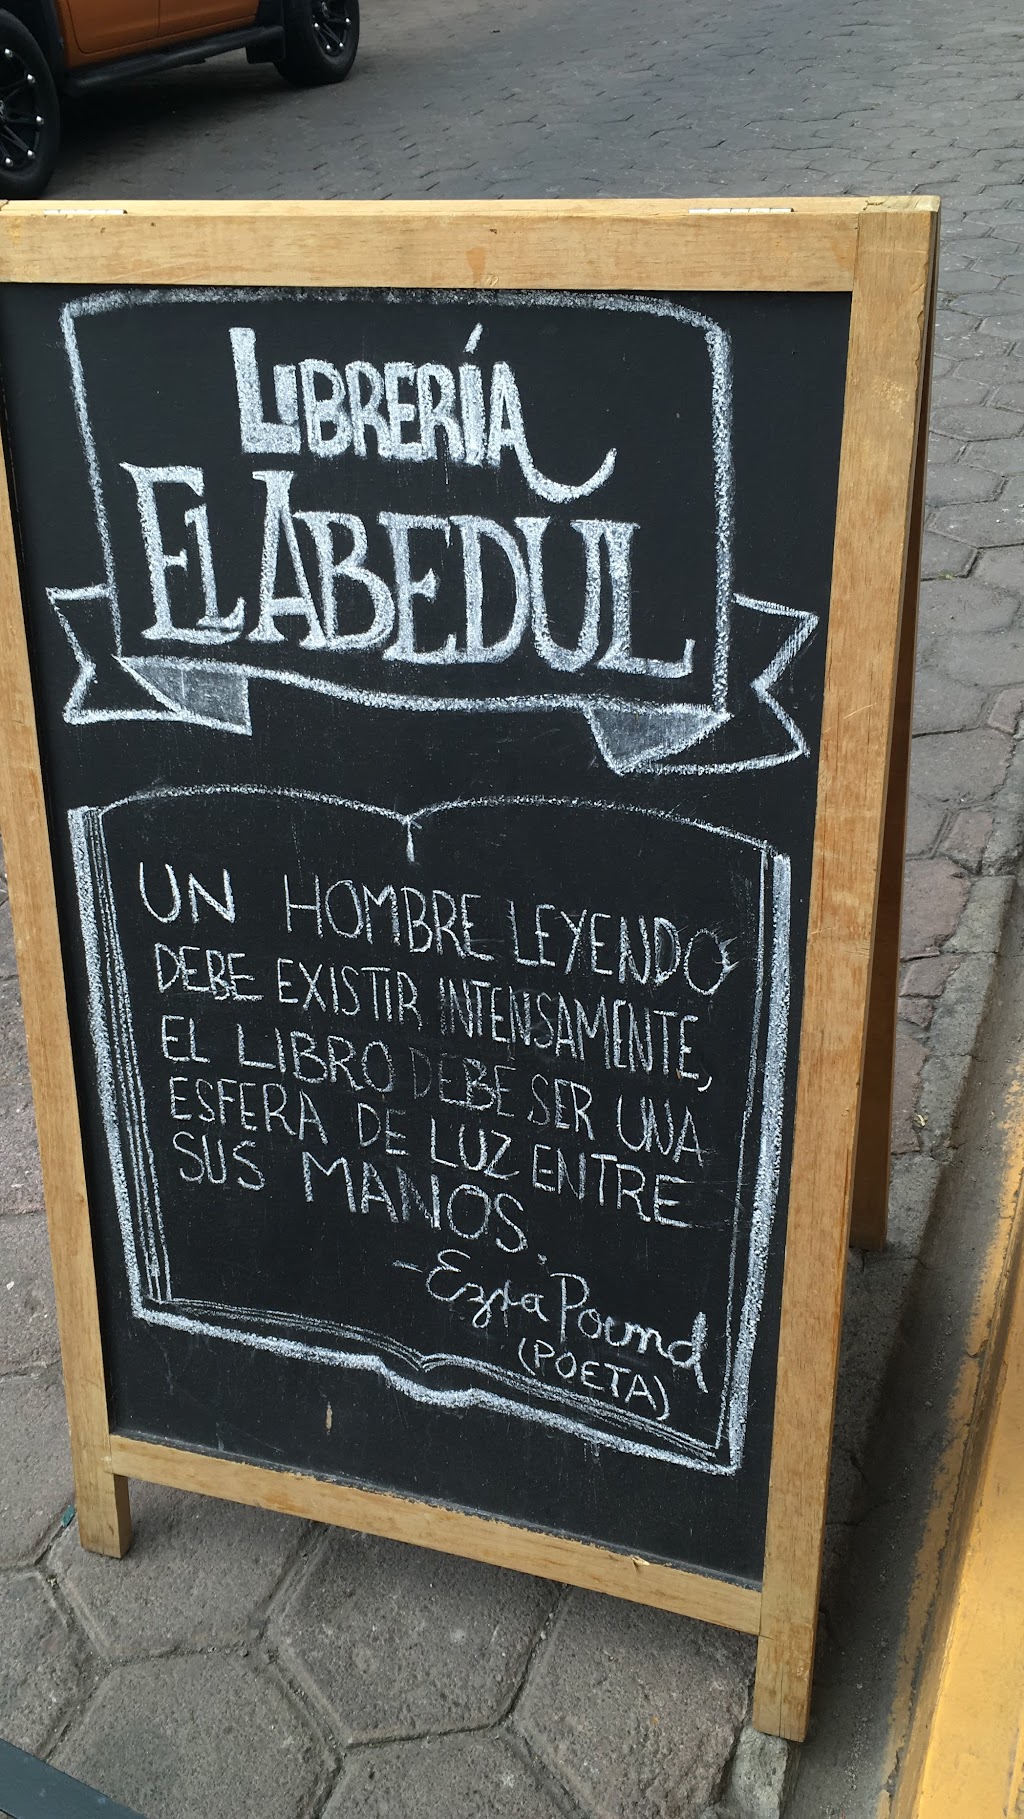 LIBRERÍA
EL ABEDUL
UN HOMBRE LEYENDO
DEBE EXISTIR INTENSAMENTE,
EL LIBRO DEBE SER UNA
ESFERA DE LUZ ENTRE
SUS MANOS.
-Ezra Pound
(POETA)